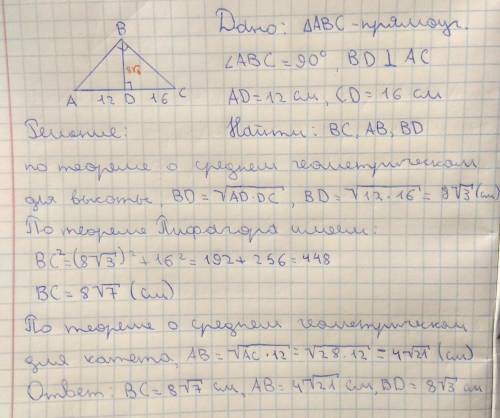 Дано: △ABC - прямоуг.
B
∠ABC = 90°, BD ⊥ AC
8√3
A 12 D 16 C
AD = 12 см, CD = 16 см
Решение:
Найти: BC, AB, BD
по теореме о среднем геометрическом
для высоты, BD = √AD·DC, BD = √12·16 = 8√3 (см)
По теореме Пифагора имеем:
BC² = (8√3)² + 16² = 192 + 256 = 448
BC = 8√7 (см)
По теореме о среднем геометрическом
для катета, AB = √AC·12 = √28·12 = 4√21 (см)
Ответ: BC = 8√7 см, AB = 4√21 см, BD = 8√3 см